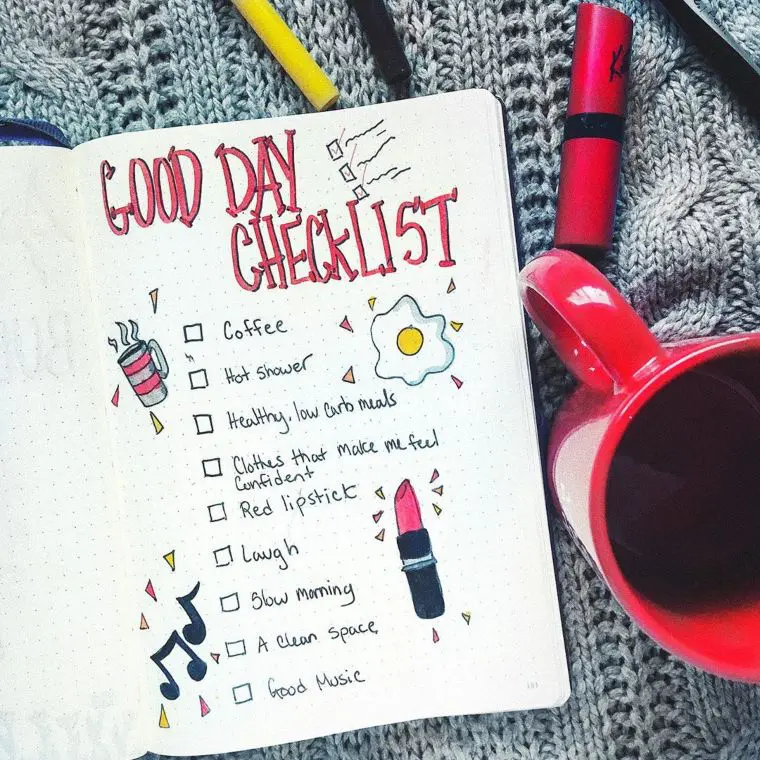 GOOD DAY
CHECKLIST
Coffee
Hot Shower
Healthy, low carb meals
Clothes that make me feel
confident
Red lipstick
Laugh
Slow morning
A clean space
Good Music